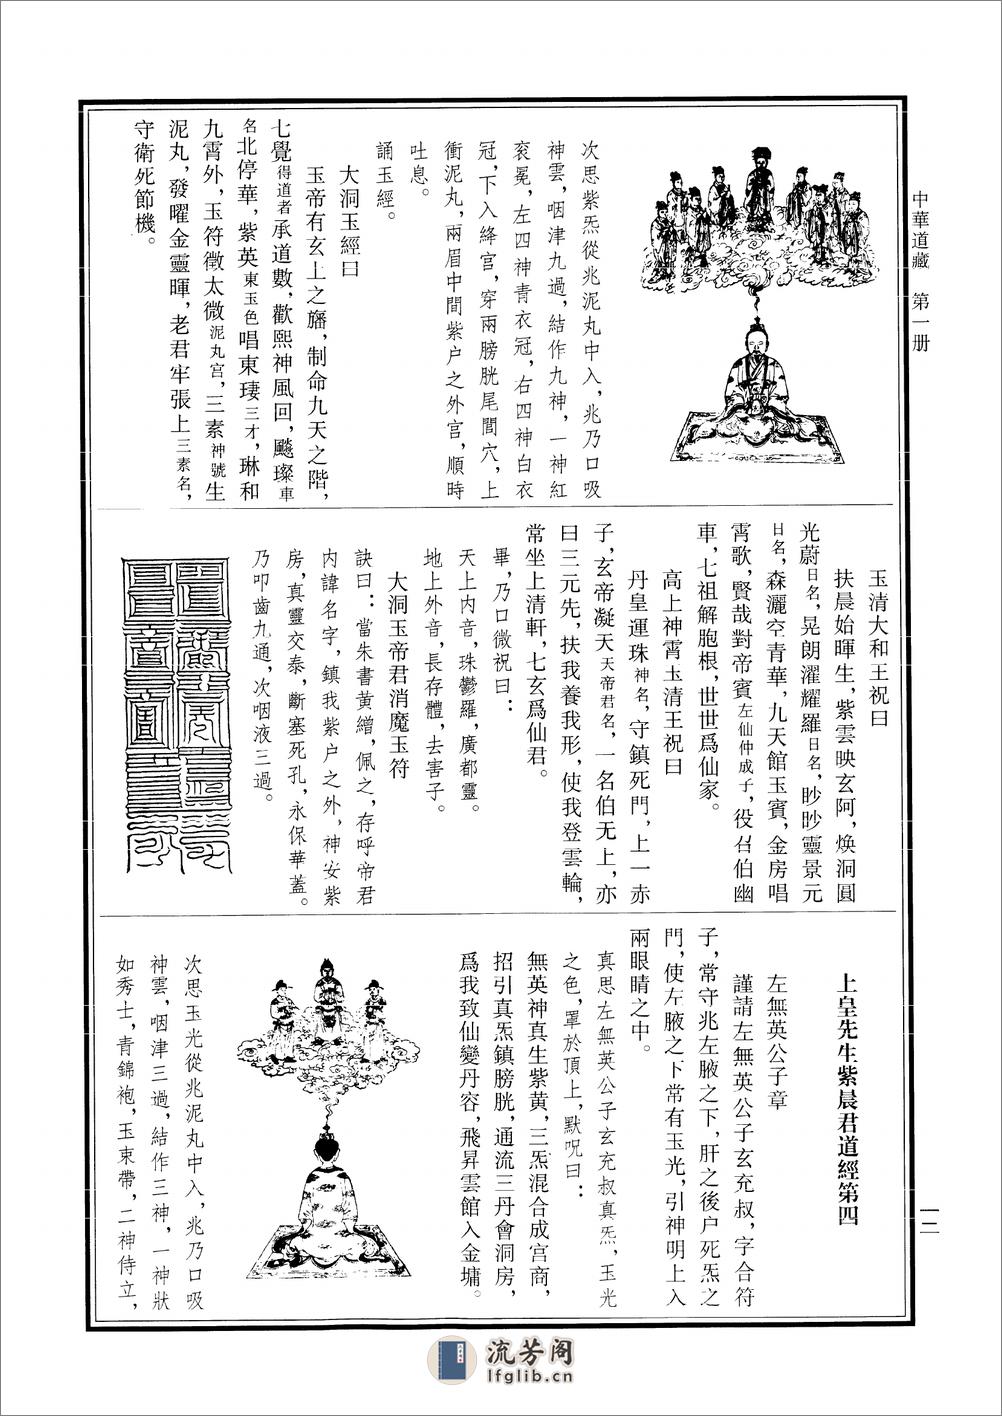 中華道藏　第一册
次思紫炁從兆泥丸中入，兆乃口吸
神雲，咽津九過，結作九神，一神紅
衮冕，左四神青衣冠，右四神白衣
冠，下入絳宫，穿兩膀胱尾閭穴，上
衝泥丸，兩眉中間紫户之外宫，順時
吐息。
誦玉經。
大洞玉經曰
玉帝有玄上之旛，制命九天之階，
七覺得道者承道數，歡熙神風回，飈璨車
名北停華，紫英東玉色唱東㻑三才，琳和
九霄外，玉符徵太微泥丸宫，三素神號生
泥丸，發曜金靈暉，老君牢張上三素名，
守衛死節機。
玉清大和王祝曰
扶晨始暉生，紫雲映玄阿，焕洞圓
光蔚日名，晃朗濯耀羅日名，眇眇靈景元
日名，森灑空青華，九天館玉賓，金房唱
霄歌，賢哉對帝賓左仙仲成子，役召伯幽
車，七祖解胞根，世世爲仙家。
高上神霄玉清王祝曰
丹皇運珠神名，守鎮死門，上一赤
子，玄帝凝天天帝君名，一名伯无上，亦
曰三元先，扶我養我形，使我登雲輪，
常坐上清軒，七玄爲仙君。
畢，乃口微祝曰：
天上内音，珠鬱羅，廣都靈。
地上外音，長存體，去害子。
大洞玉帝君消魔玉符
訣曰：當朱書黄繒，佩之，存呼帝君
内諱名字，鎮我紫户之外，神安紫
房，真靈交泰，斷塞死孔，永保華蓋。
乃叩齒九通，次咽液三過。
上皇先生紫晨君道經第四
左無英公子章
謹請左無英公子玄充叔，字合符
子，常守兆左腋之下，肝之後户死炁之
門，使左腋之下常有玉光，引神明上入
兩眼睛之中。
真思左無英公子玄充叔真炁，玉光
之色，罩於頂上，默呪曰：
無英神真生紫黄，三炁混合成宫商，
招引真炁鎮膀胱，通流三丹會洞房，
爲我致仙變丹容，飛昇雲館入金墉。
次思玉光從兆泥丸中入，兆乃口吸
神雲，咽津三過，結作三神，一神狀
如秀士，青錦袍，玉束帶，二神侍立，
一二
流芳阁
lfglib.cn